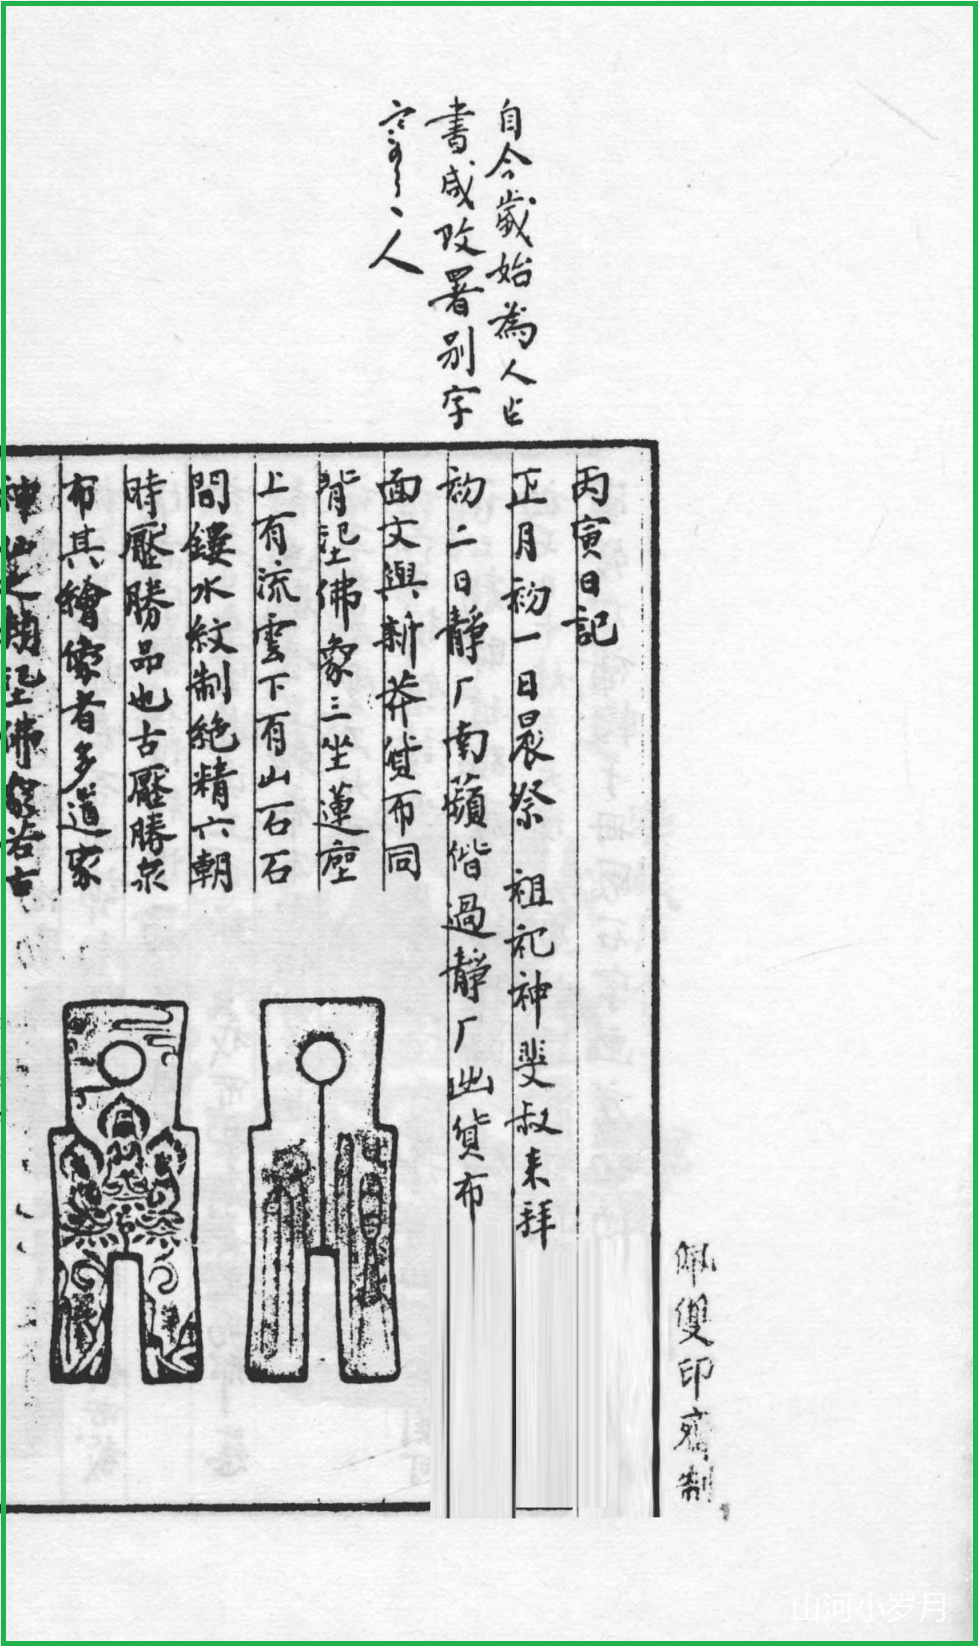 自今歲始為人占
書咸改署別字
寒雲、人
丙寅日記
正月初一日晨祭 祖祀神斐叔来拜
初二日靜厂南蘋偕過靜厂出貨布
面文與新莽貨布同
背範佛象三坐蓮座
上有流雲下有山石石
間鏤水紋制絶精六朝
時壓勝品也古壓勝泉
布其繪像者多道家
神仙之類範佛象若古
佩雙印齋制
山河小岁月